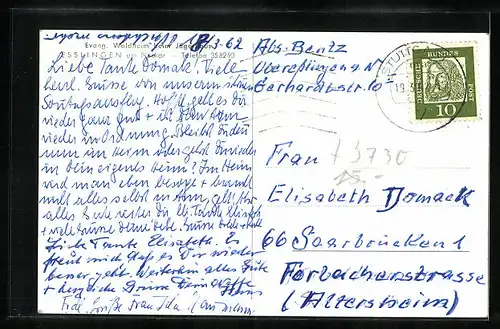 3-62
Evang. Waldheim beim Jägerhaus
ESSLINGEN am Neckar Telefon 358293
Liebe Tante Domack! Viele
herzl. Grüsse von unserem schönen
Sonntagsausflug. Hofftl. geht es dir
wieder ganz gut +
wieder in Ordnung. Bleibst du denn
nun im Heim oder gehst du wieder
in dein eigenes Heim? Im Heim
wird man eben besorgt + braucht
nicht alles selbst zu tun, gell!
alles Gute weiter dir lb. Tante Elisabeth
+ viele Grüsse deine
Liebe Tante Elisabeth. Es
freut mich daß es Dir wieder
besser geht. Weiterhin alles Gute
+ herzliche Grüsse Deine
Grüße Frau
Abs. Bentz
Oberesslingen a. N
Gerhardtstr. 10
STUTTG
19.3.
DEUTSCHE BUNDESPOST
10
Frau
+ 3730
Elisabeth Domack
66 Saarbrücken 1
Forbacherstrasse
(Altersheim)